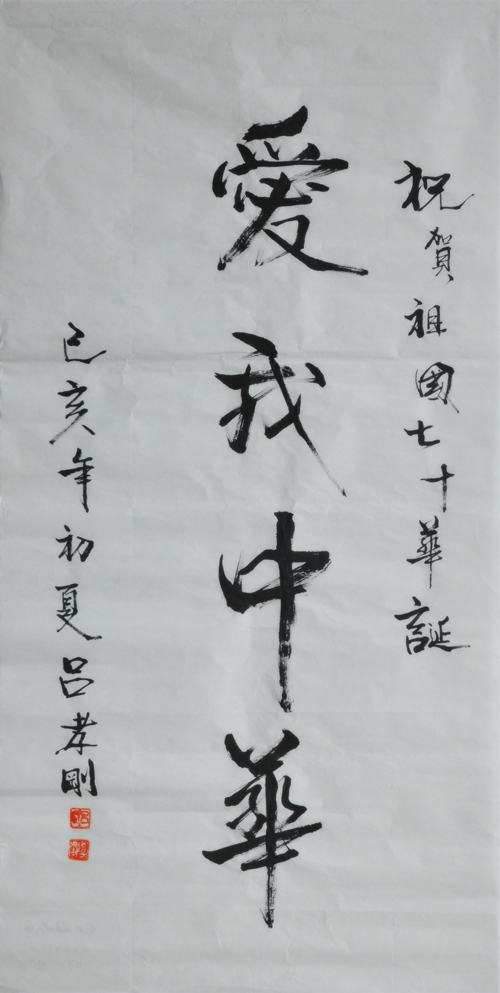 祝賀祖國七十華誕
愛我中華
己亥年初夏吕孝剛